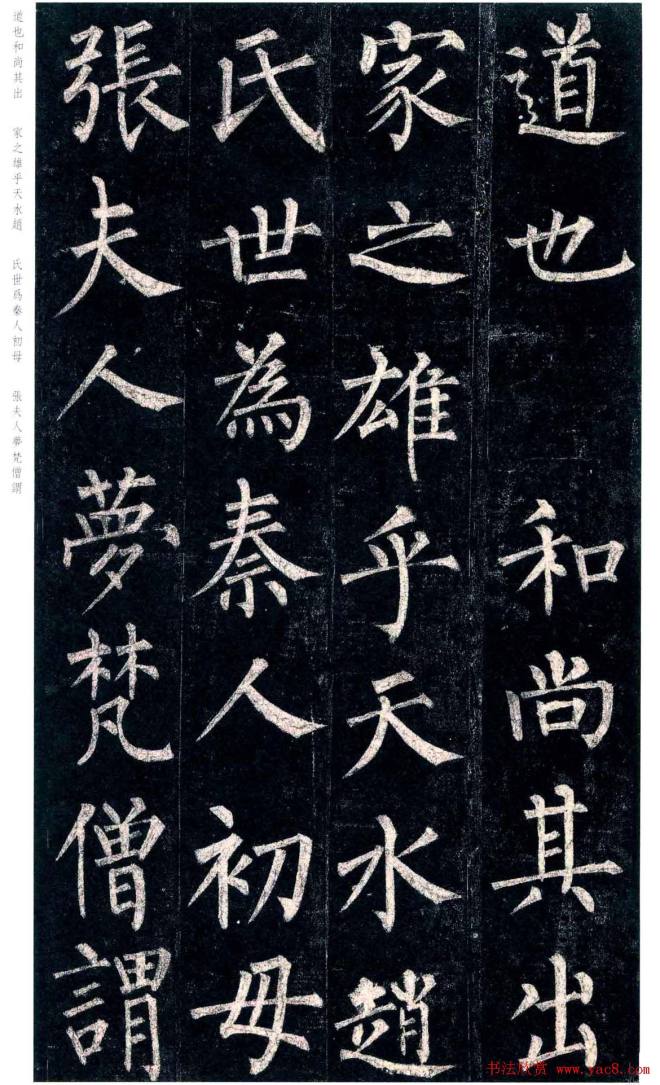 道也 和尚其出
家之雄乎天水趙
氏世為秦人初母
張夫人夢梵僧謂
道也和尚其出 家之雄乎天水趙 氏世爲秦人初母 張夫人夢梵僧謂
书法欣赏 www.yac8.com